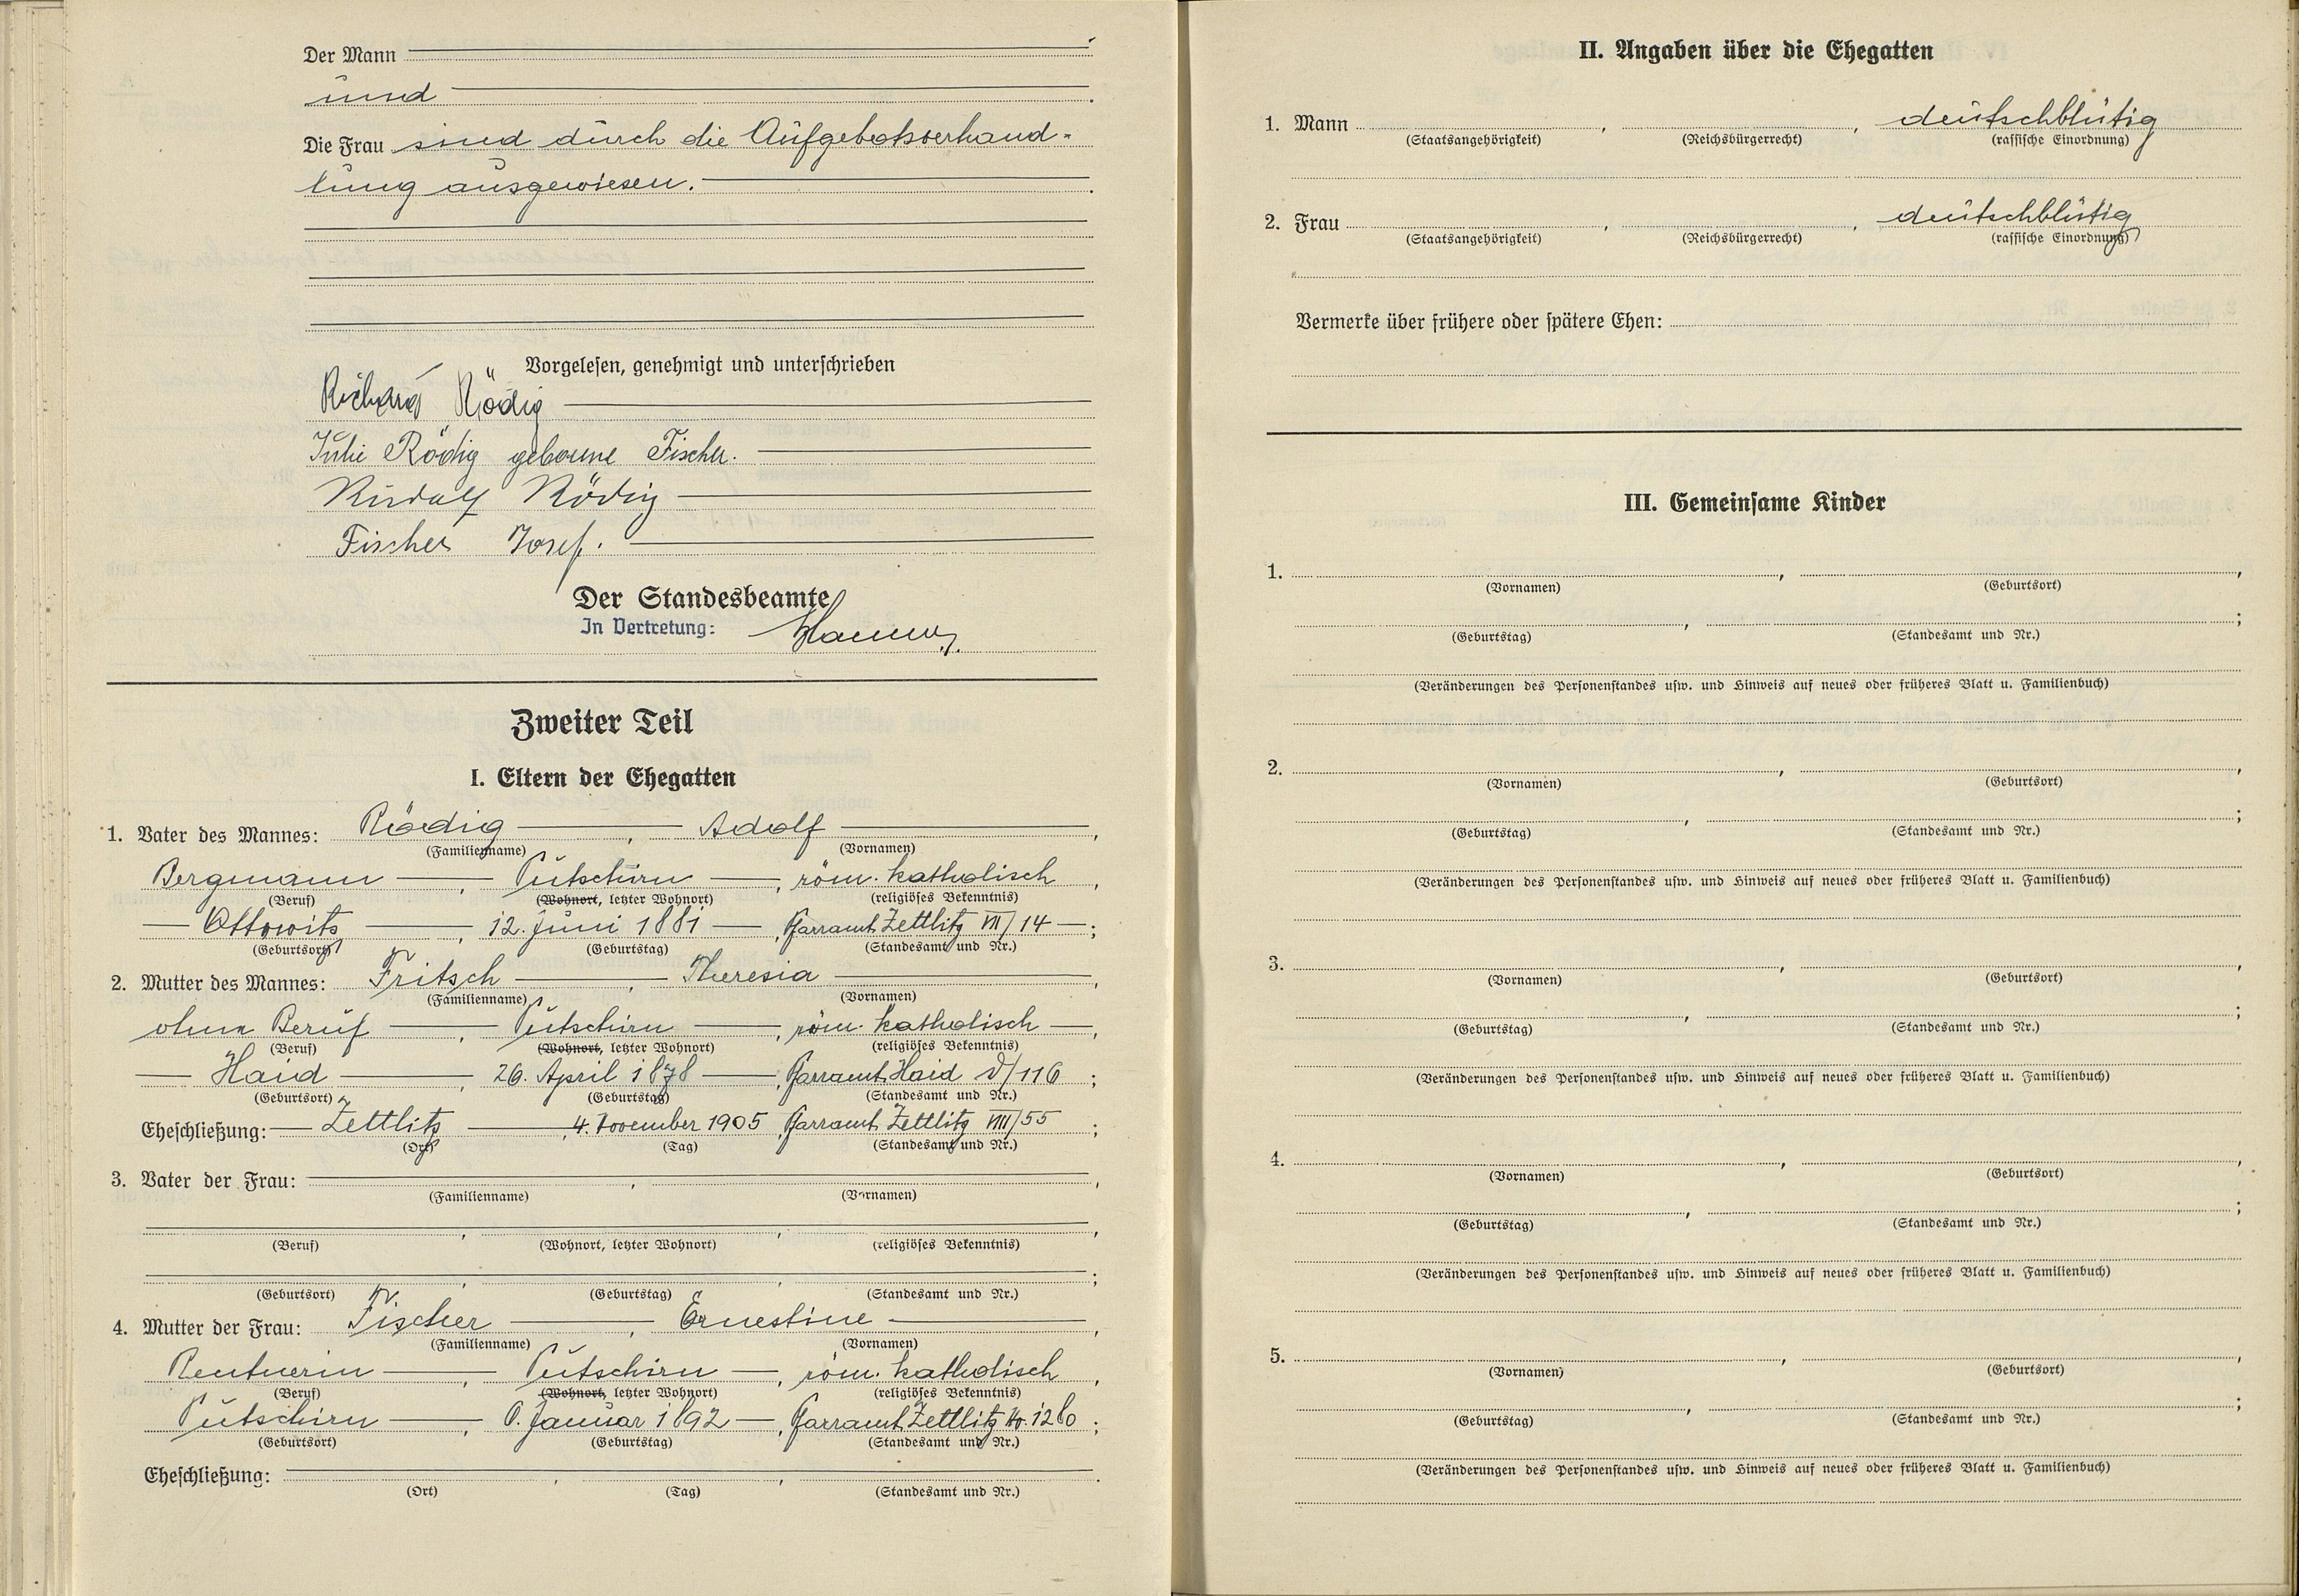 Der Mann
und
Die Frau sind durch die Aufgebotsverhand-
lung ausgewiesen.
Vorgelesen, genehmigt und unterschrieben
Richard Rödig
Julie Rödig geborene Fischer.
Rudolf Rödig
Fischer Josef.
Der Standesbeamte
In Vertretung:
Zweiter Teil
I. Eltern der Ehegatten
1. Vater des Mannes: Rödig, Adolf,
(Familienname) (Vornamen)
Bergmann, Putschirn, röm. katholisch,
(Beruf) (Wohnort, letzter Wohnort) (religiöses Bekenntnis)
Ottowitz, 12. Juni 1881, Pfarramt Zettlitz VII/14;
(Geburtsort) (Geburtstag) (Standesamt und Nr.)
2. Mutter des Mannes: Fritsch, Theresia,
(Familienname) (Vornamen)
ohne Beruf, Putschirn, röm. katholisch,
(Beruf) (Wohnort, letzter Wohnort) (religiöses Bekenntnis)
Haid, 26. April 1878, Pfarramt Haid D/116;
(Geburtsort) (Geburtstag) (Standesamt und Nr.)
Eheschließung: Zettlitz, 4. November 1905, Pfarramt Zettlitz VIII/55;
(Ort) (Tag) (Standesamt und Nr.)
3. Vater der Frau: , ,
(Familienname) (Vornamen)
(Beruf) (Wohnort, letzter Wohnort) (religiöses Bekenntnis)
(Geburtsort) (Geburtstag) (Standesamt und Nr.)
4. Mutter der Frau: Fischer, Ernestine,
(Familienname) (Vornamen)
Rentnerin, Putschirn, röm. katholisch,
(Beruf) (Wohnort, letzter Wohnort) (religiöses Bekenntnis)
Putschirn, Januar 1892, Pfarramt Zettlitz No. 1280;
(Geburtsort) (Geburtstag) (Standesamt und Nr.)
Eheschließung:
(Ort) (Tag) (Standesamt und Nr.)
II. Angaben über die Ehegatten
1. Mann , , deutschblütig
(Staatsangehörigkeit) (Reichsbürgerrecht) (rassische Einordnung)
2. Frau , , deutschblütig
(Staatsangehörigkeit) (Reichsbürgerrecht) (rassische Einordnung)
Vermerke über frühere oder spätere Ehen:
III. Gemeinsame Kinder
1. , ,
(Vornamen) (Geburtsort)
(Geburtstag) (Standesamt und Nr.)
(Veränderungen des Personenstandes usw. und Hinweis auf neues oder früheres Blatt u. Familienbuch)
2. , ,
(Vornamen) (Geburtsort)
(Geburtstag) (Standesamt und Nr.)
(Veränderungen des Personenstandes usw. und Hinweis auf neues oder früheres Blatt u. Familienbuch)
3. , ,
(Vornamen) (Geburtsort)
(Geburtstag) (Standesamt und Nr.)
(Veränderungen des Personenstandes usw. und Hinweis auf neues oder früheres Blatt u. Familienbuch)
4. , ,
(Vornamen) (Geburtsort)
(Geburtstag) (Standesamt und Nr.)
(Veränderungen des Personenstandes usw. und Hinweis auf neues oder früheres Blatt u. Familienbuch)
5. , ,
(Vornamen) (Geburtsort)
(Geburtstag) (Standesamt und Nr.)
(Veränderungen des Personenstandes usw. und Hinweis auf neues oder früheres Blatt u. Familienbuch)